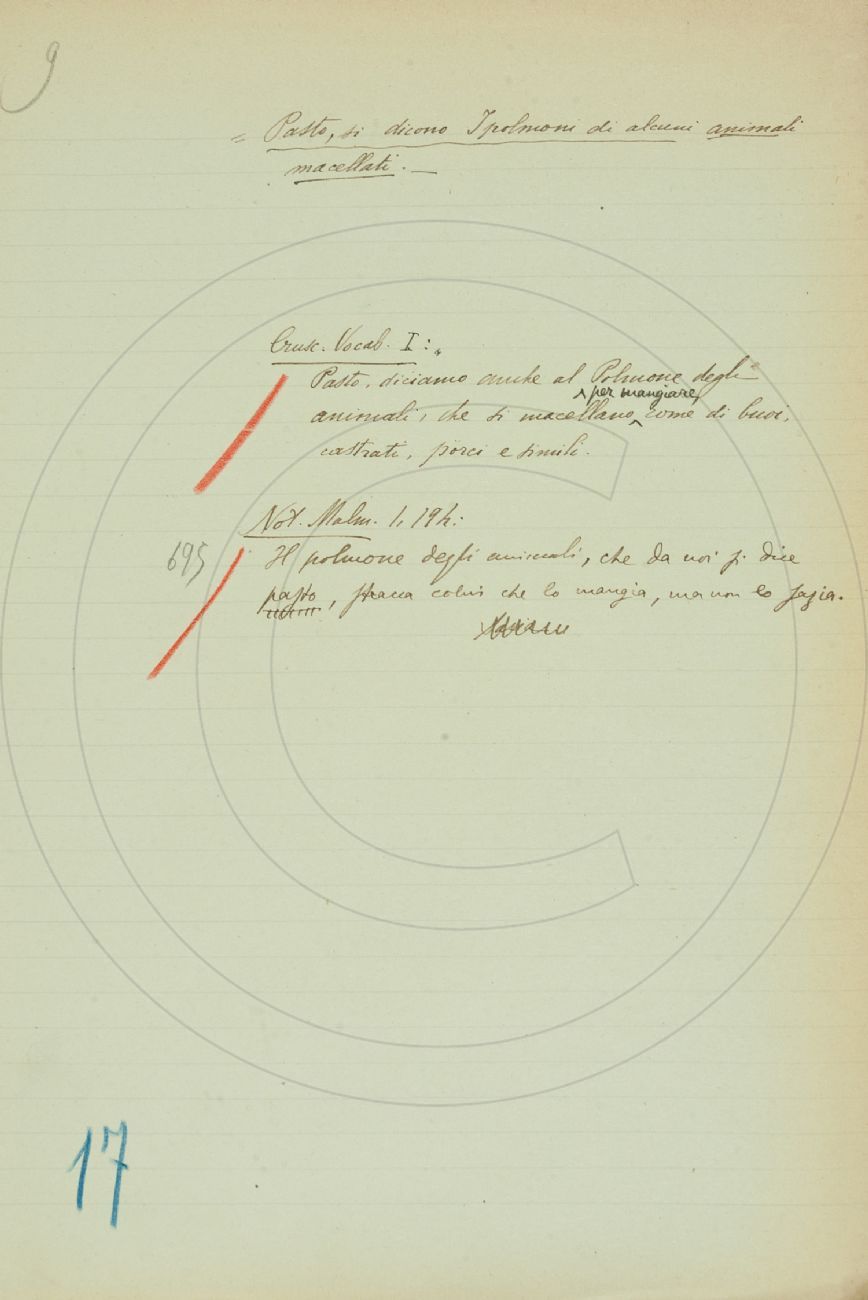 9
= Pasto, si dicono I polmoni di alcuni animali
macellati. —
Crusc. Vocab. I:
Pasto, diciamo anche al Polmone degli
per mangiare,
animali, che si macellano, come di buoi,
castrati, porci e simili.
Not. Malm. 1, 194:
695
Il polmone degli animali, che da noi si dice
pasto, stracca colui che lo mangia, ma non lo sazia.
17